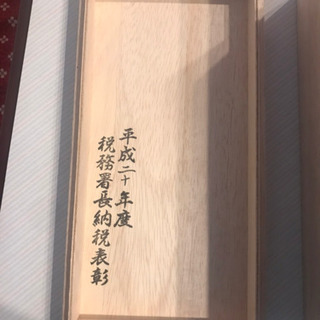 平成二十年度
税務署長納税表彰